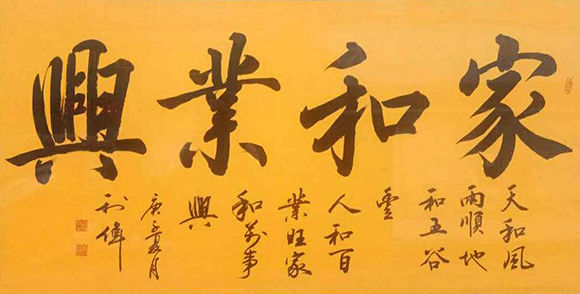 家和業興
天和風
雨順地
和五谷
豐
人和百
業旺家
和萬事
興
庚子夏月
利偉